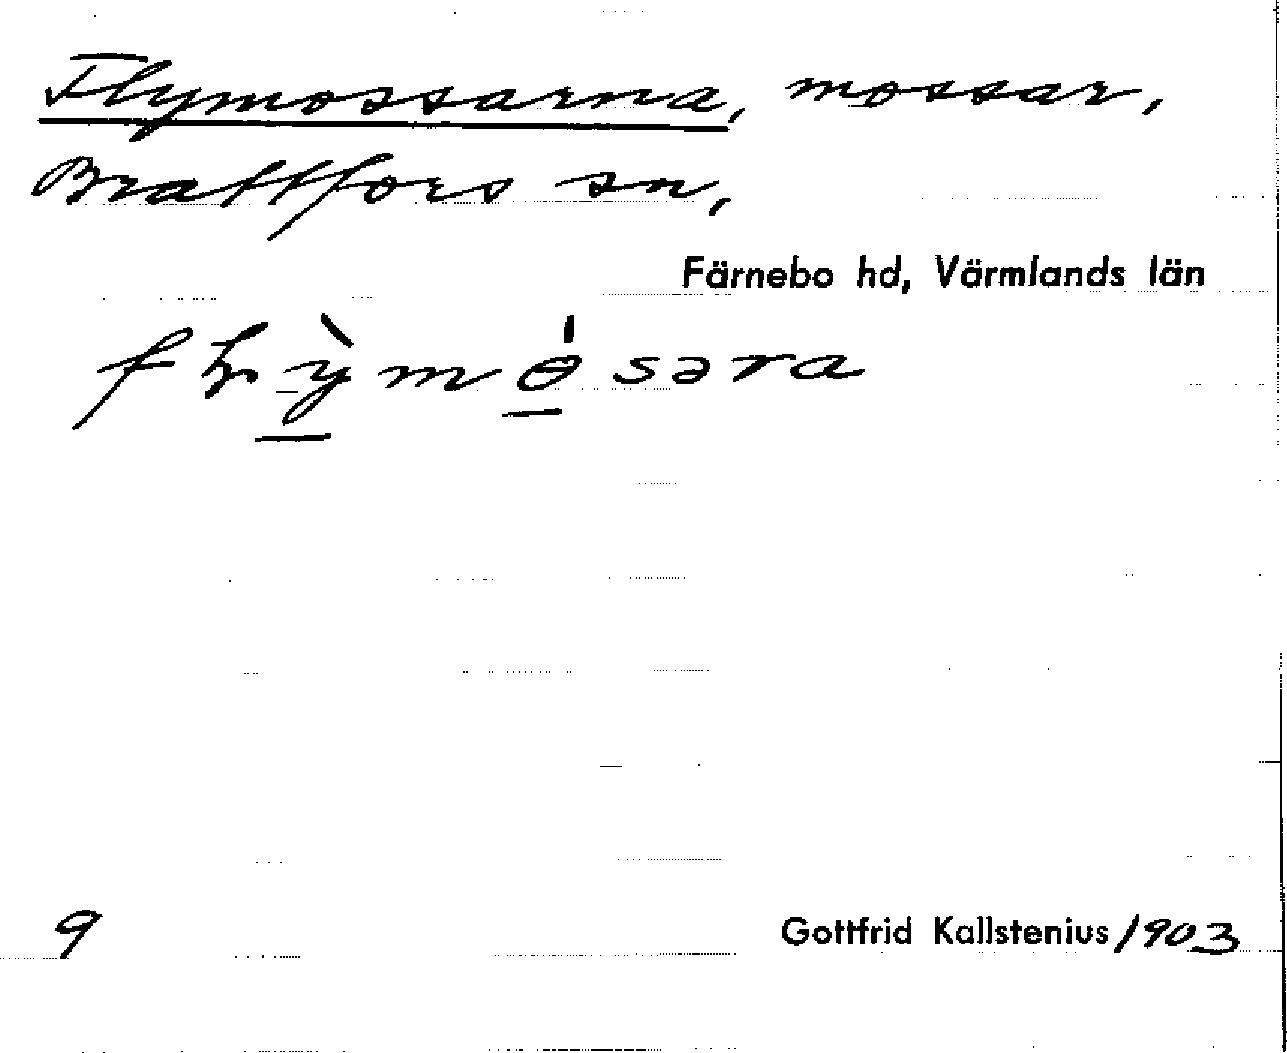 Flymossarna, mossar,
Brattfors sn,
Färnebo hd, Värmlands län
fɫỳmɵ́səra
9
Gottfrid Kallstenius /1903